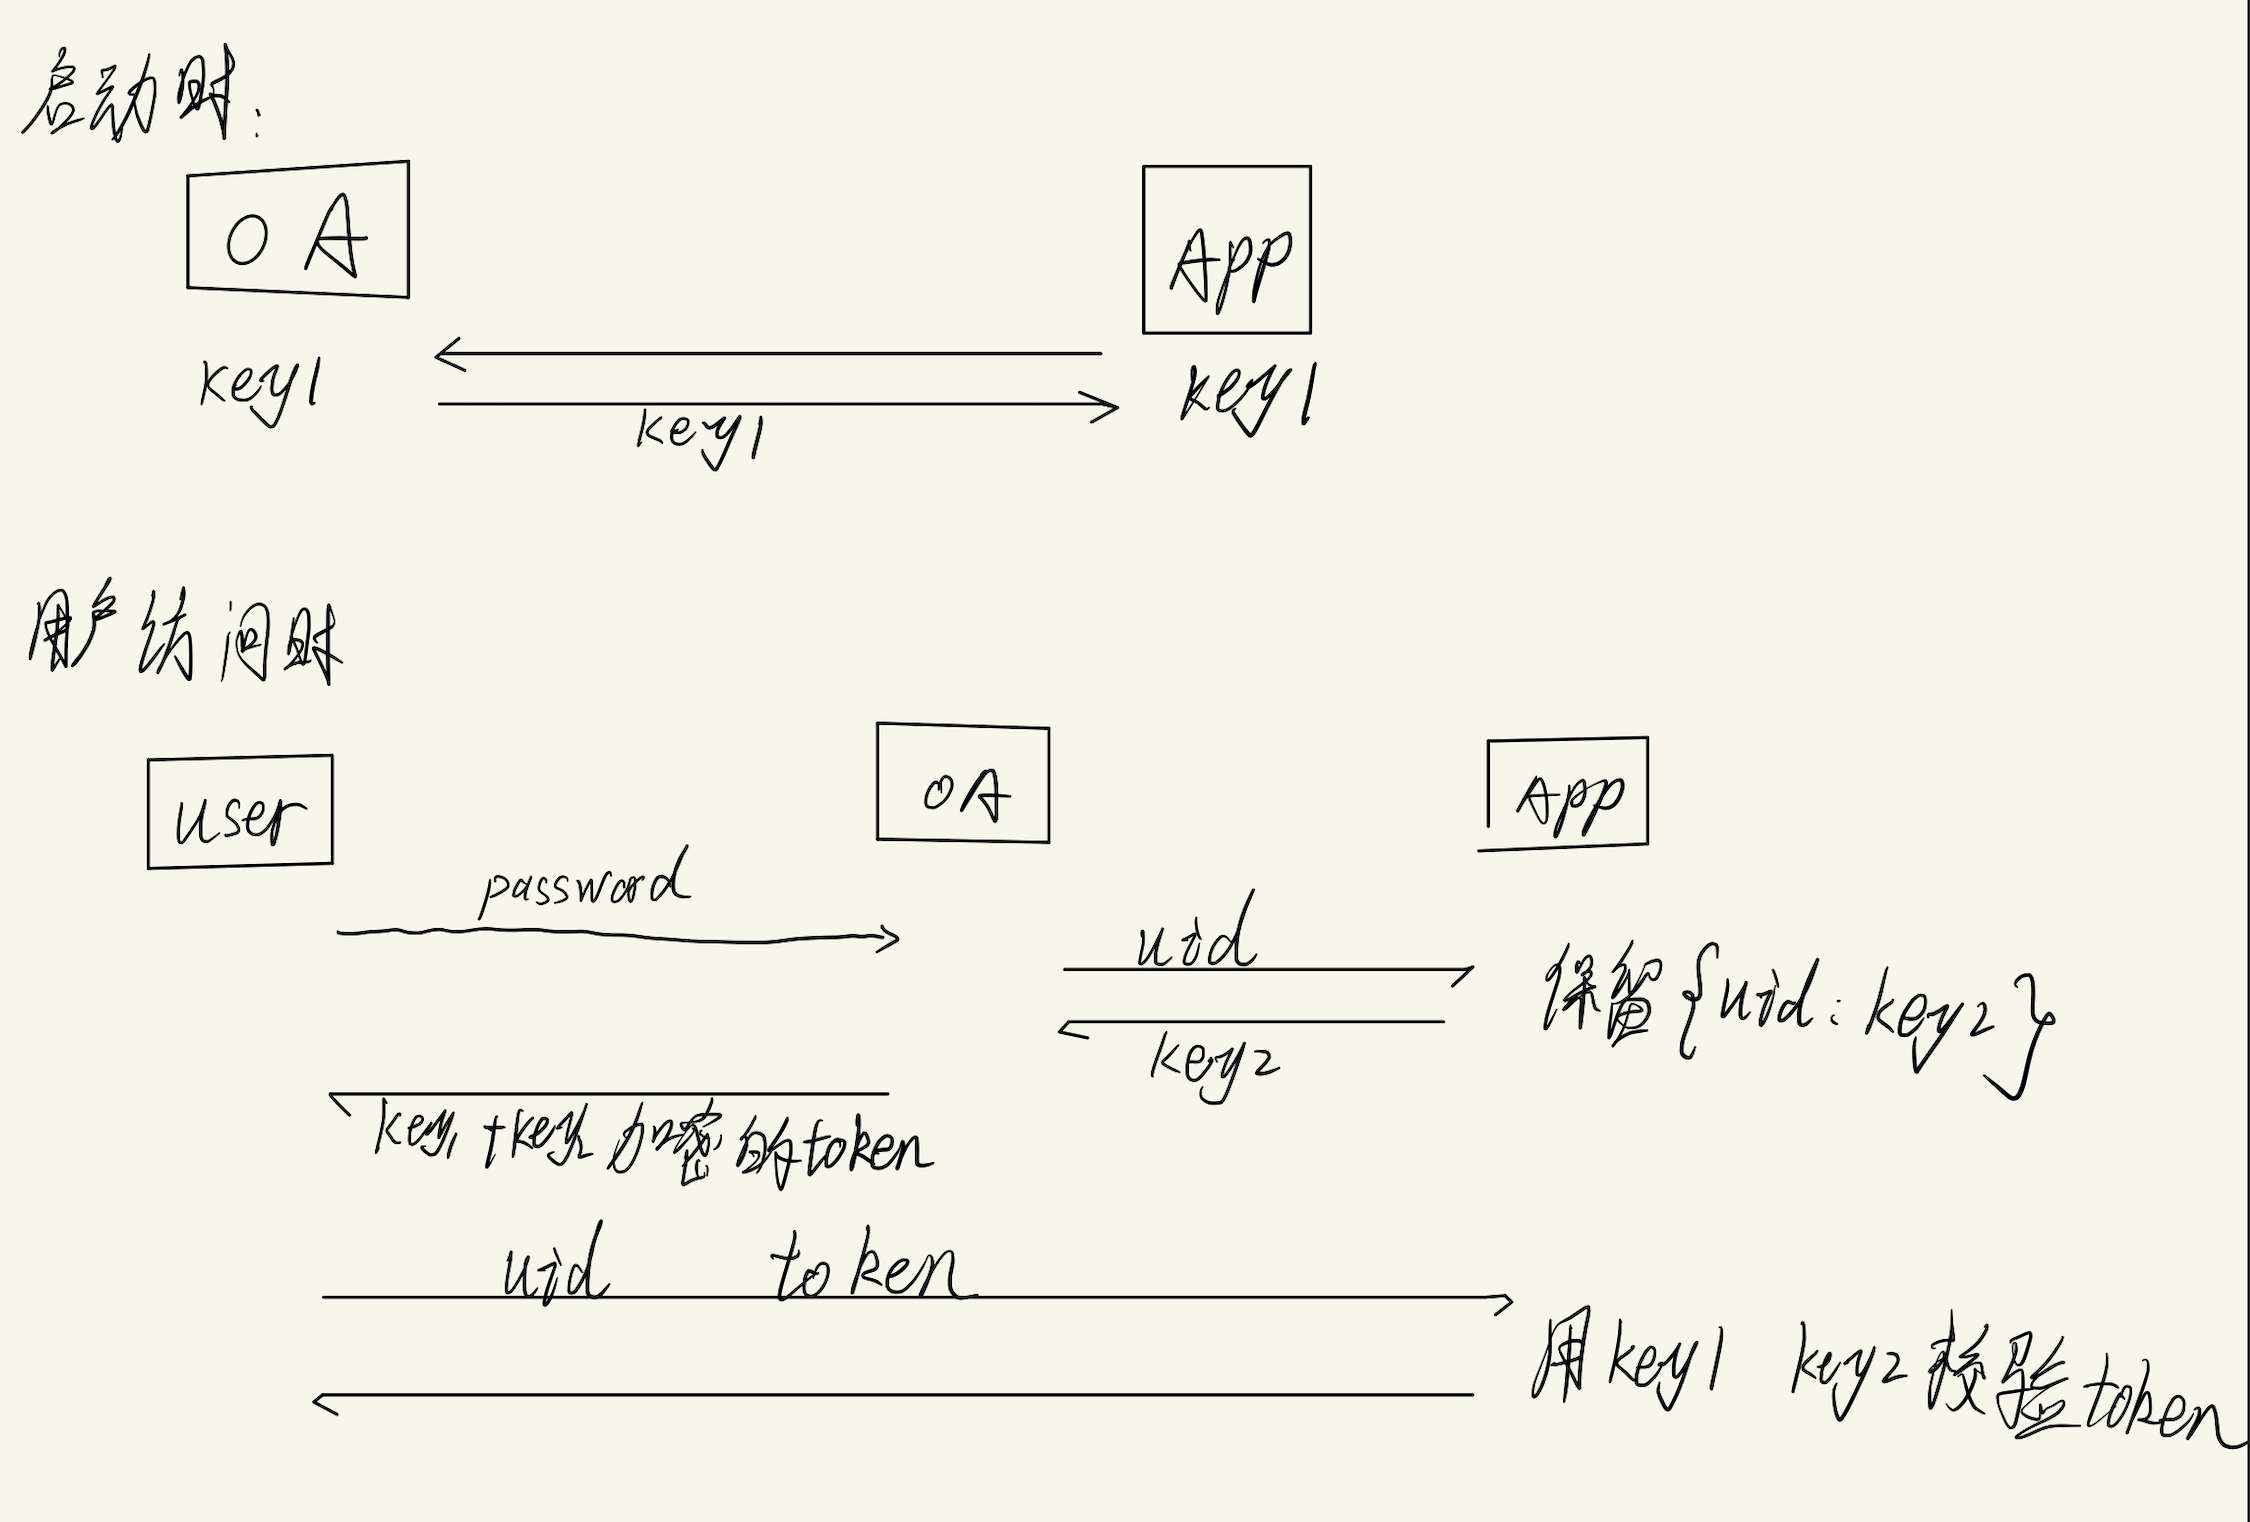 启动时:
OA
App
key1
key1
key1
用户访问时
user
OA
App
password
uid
保留{uid:key2}
key2
key1+key2加密的token
uid token
用key1 key2校验token